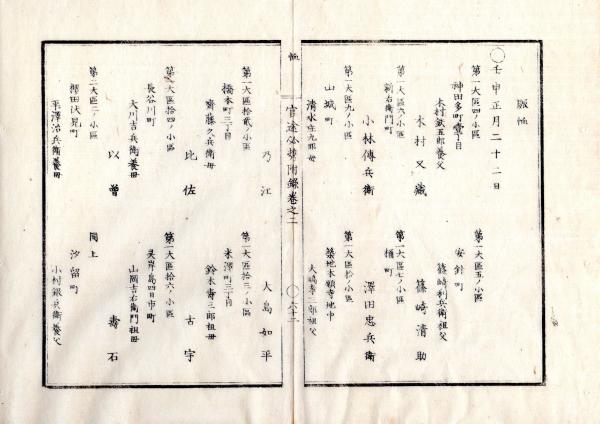 賑恤
○壬申正月二十二日
第一大區四ノ小區
神田多町壹丁目
木村鉄五郎養父
木村又藏
第一大區五ノ小區
安針町
篠崎利兵衛祖父
篠崎清助
第一大區六ノ小區
新右衛門町
小林傳兵衛
第一大區七ノ小區
桶町
澤田忠兵衛
第一大區九ノ小區
山城町
清水庄九郎母
乃江
第一大區拾ノ小區
築地本願寺地中
大嶋孝三郎祖父
大島如平
恤
官途必携附録巻之二
○六十二
第一大區拾貳ノ小區
橋本町三丁目
齋藤久兵衛母
比佐
第一大區拾三ノ小區
米澤町三丁目
鈴木壽三郎祖母
古宇
第一大區拾四ノ小區
長谷川町
大川吉兵衛養母
以曽
第一大區拾六ノ小區
靈岸島四日市町
山岡吉右衛門祖母
壽石
第二大區二ノ小區
櫻田伏見町
平澤治兵衛養母
同上
汐留町
小村銀兵衛養父